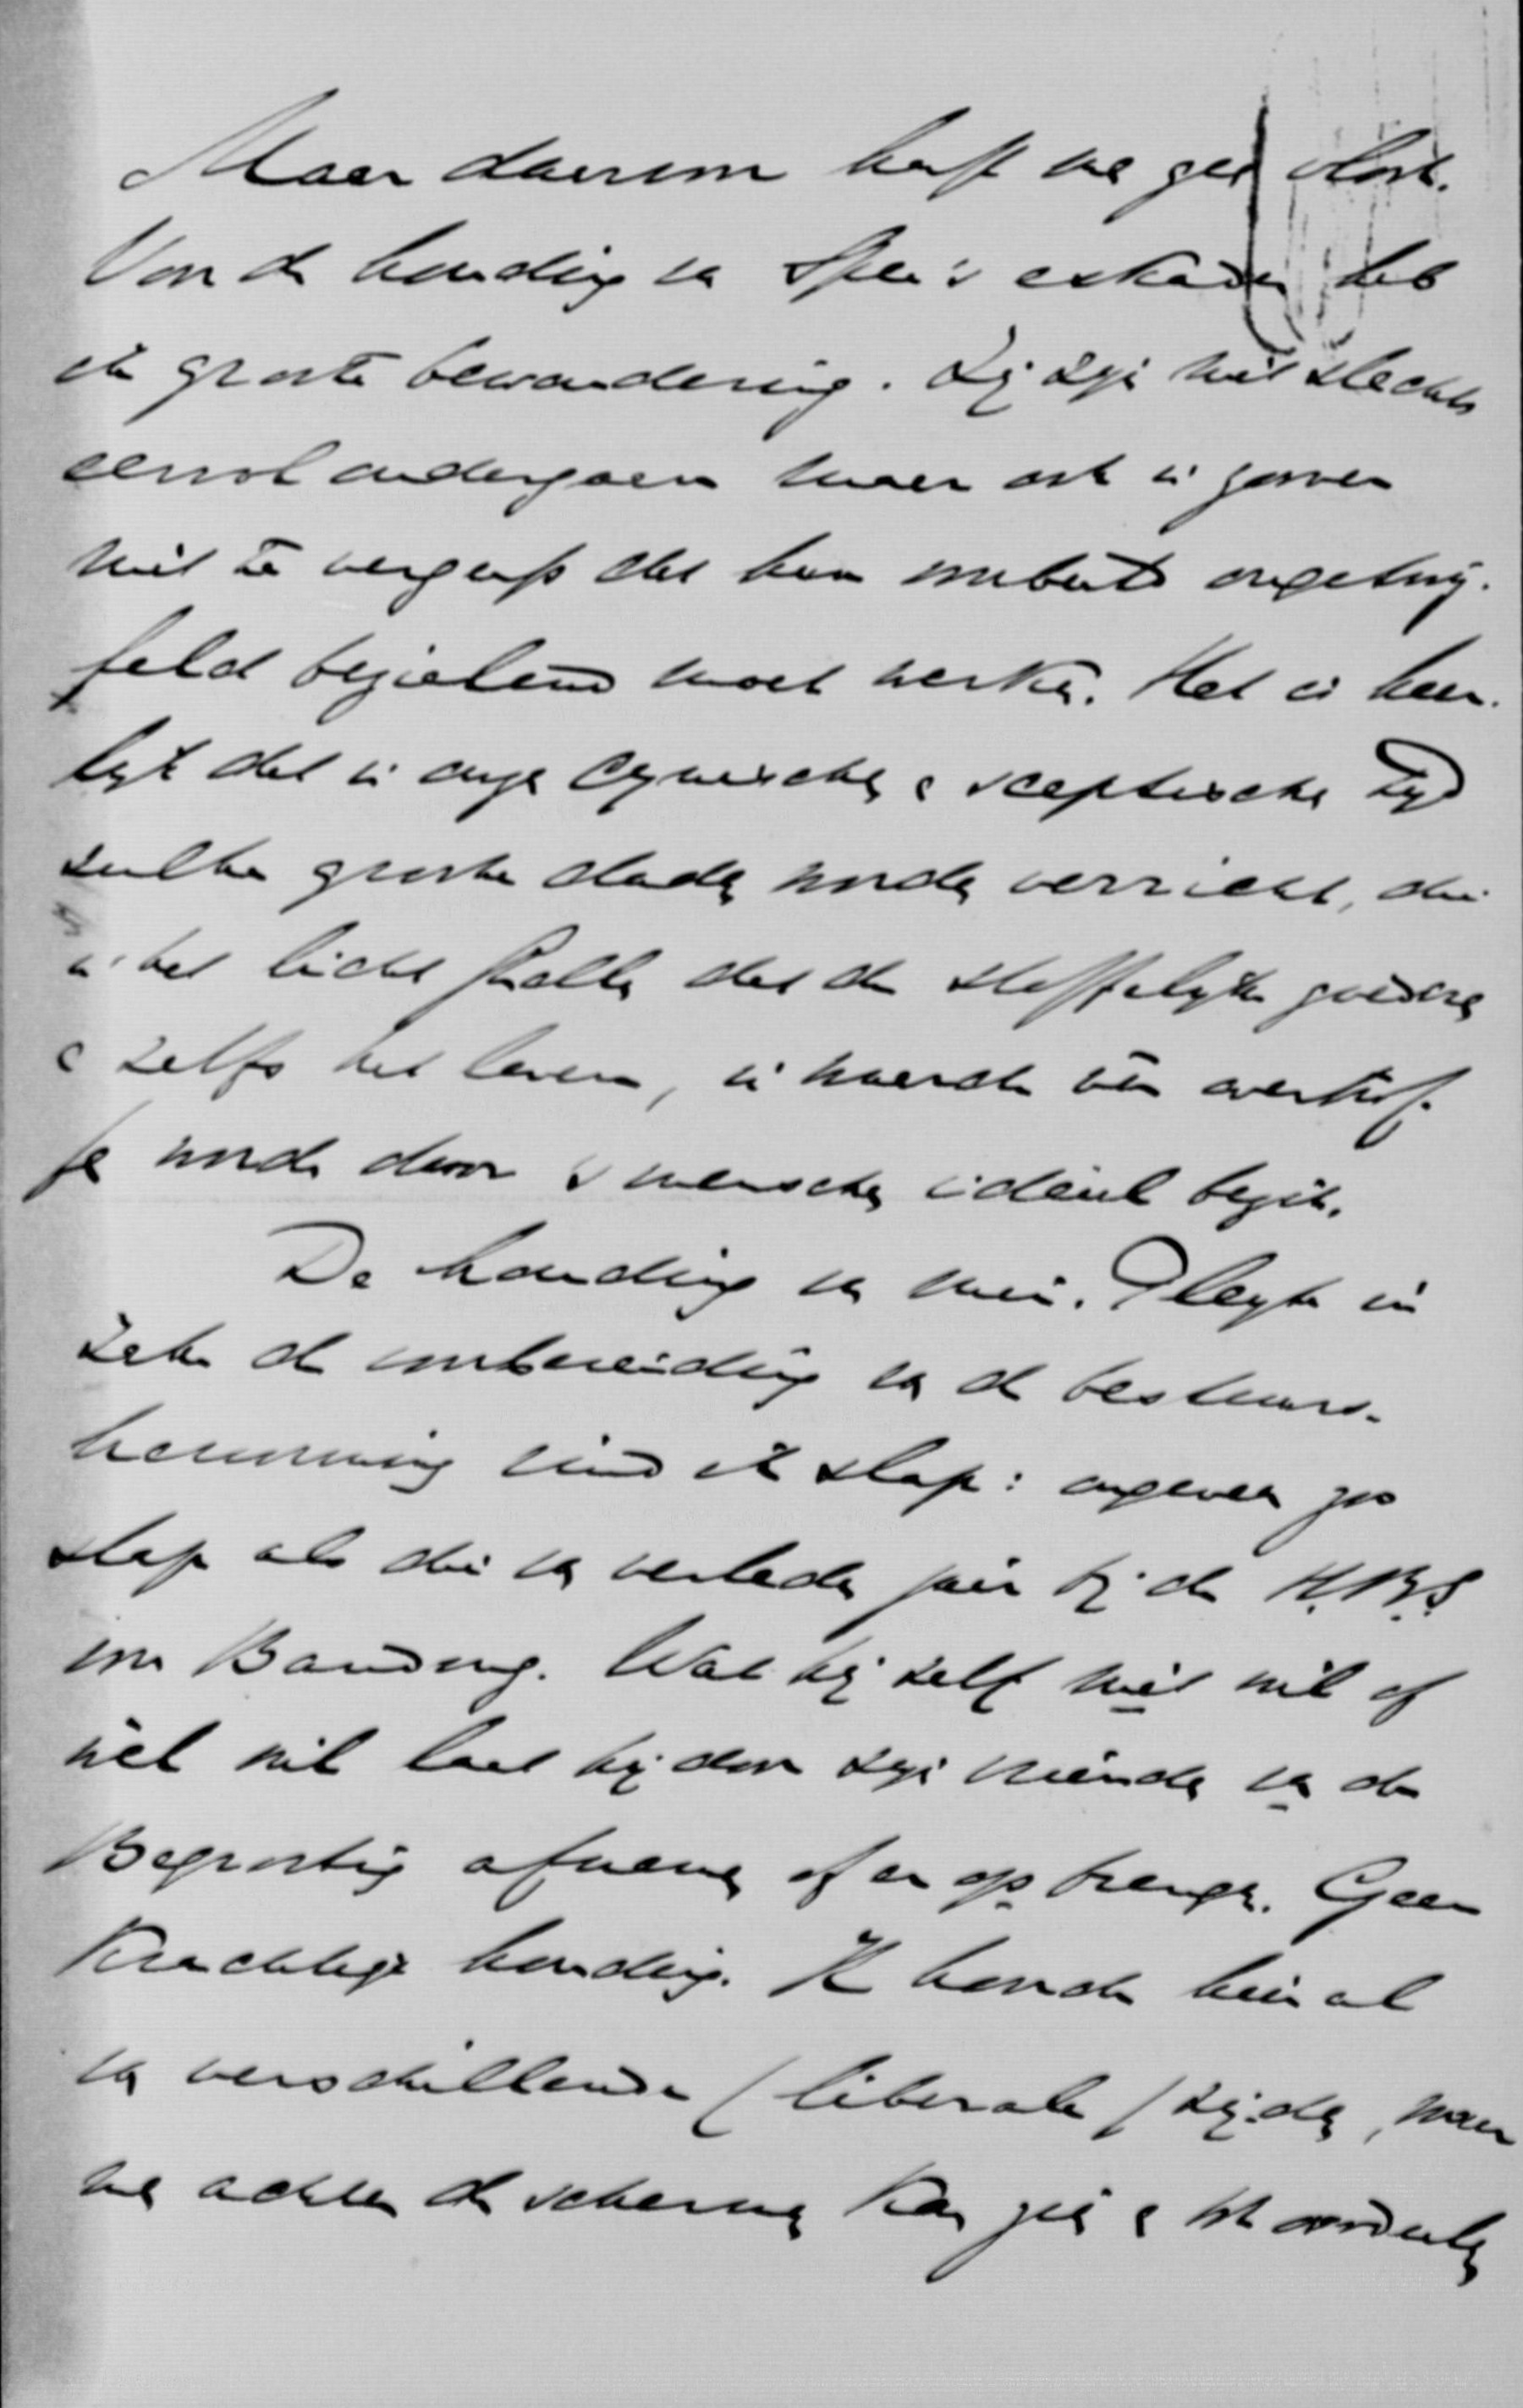 Maar daarom heeft men geen vloot.
Van de houding van Spee's eskader heb
ik groote bewondering. Zij zijn niet slechts
eervol ondergaan maar ook in zooveel
niet te vergeefs dat hun voorbeeld ongetwij-
feld bezielend moet werken. Het is heer-
lijk dat in onze cynische en sceptische tijd
zulke groote daden worden verricht, die
in het licht stellen dat de stoffelijke goederen
en zelfs het leven, in waarde ver overtrof-
fen worden door 's menschen ideëel bezit.
De houding van min. Pleyte in
zake de voorbereiding van de bestuurs-
hervorming vind ik slap: ongeveer zoo
slap als die van verleden jaar bij de H.B.S
voor Bandung. Wat hij zelf niet wil of
wel wil laat hij door zijn vrienden van de
Begrooting afnemen of er op brengen. Geen
krachtige houding. Ik hoorde hier al
van verschillende (liberale) zijden, maar
men achter de schermen kan zien en kan oordeelen